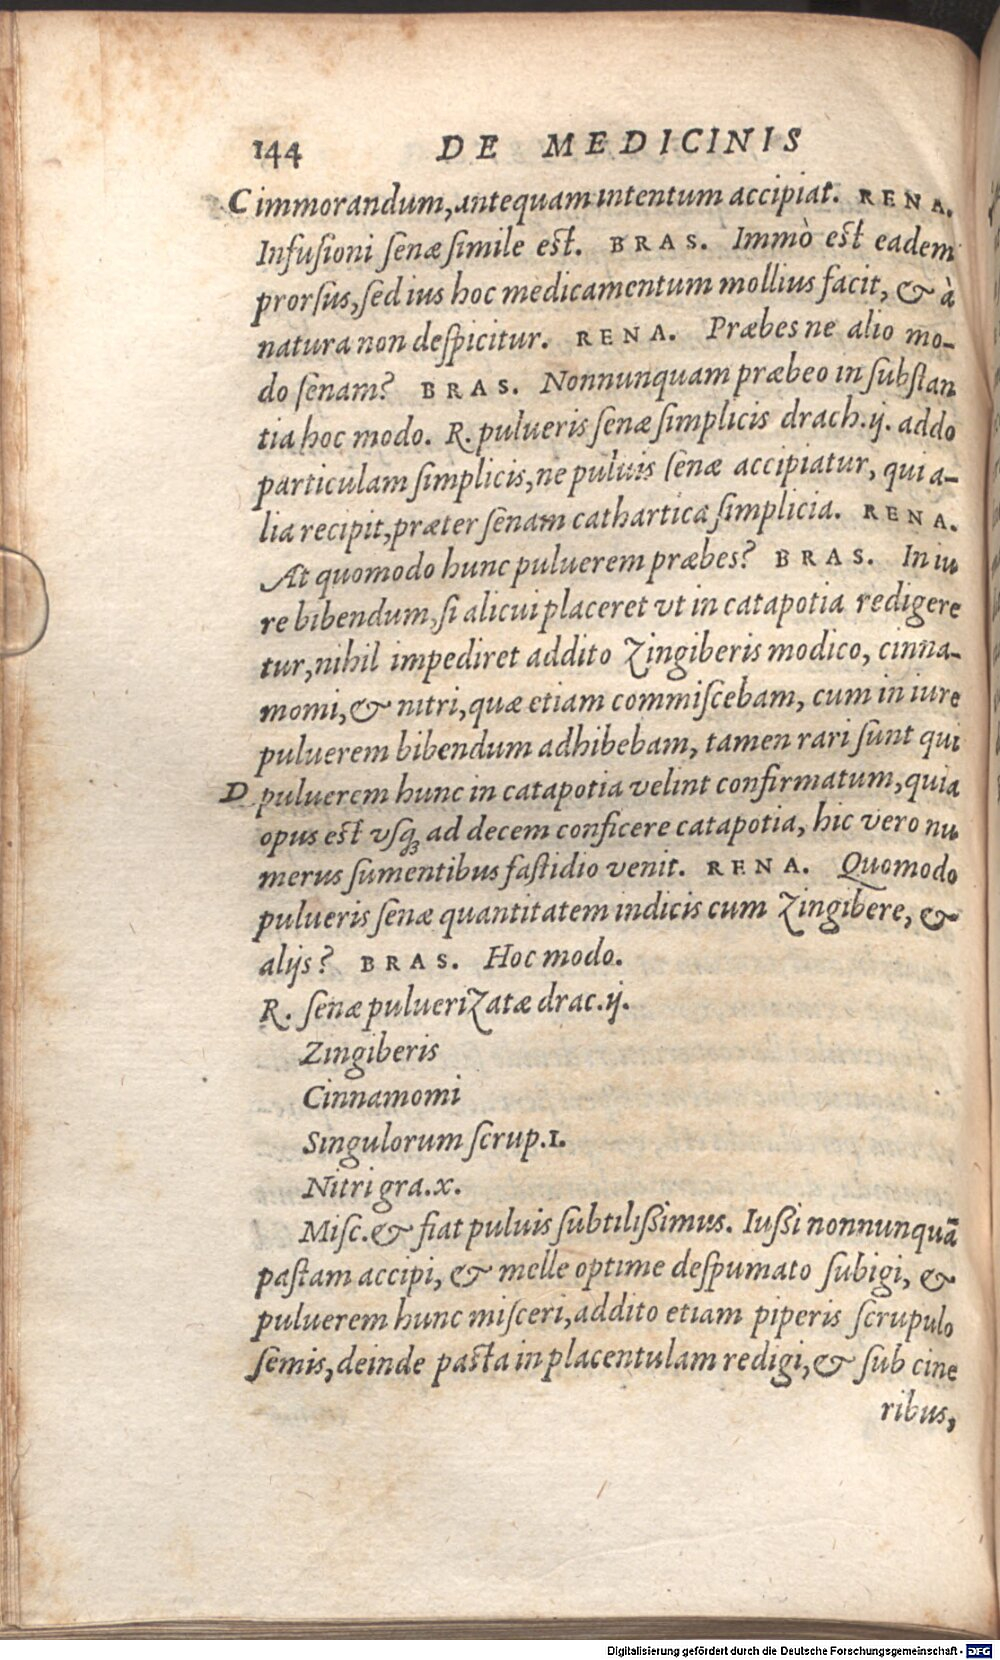 144 DE MEDICINIS
C immorandum, antequam intentum accipiat. RENA.
Infusioni senæ simile est. BRAS. Immò est eadem
prorsus, sed ius hoc medicamentum mollius facit, & à
natura non despicitur. RENA. Præbes ne alio mo-
do senam? BRAS. Nonnunquam præbeo in substan
tia hoc modo. R. pulueris senæ simplicis drach.ij. addo
particulam simplicis, ne puluis senæ accipiatur, qui a-
lia recipit, præter senam cathartica simplicia. RENA.
At quomodo hunc puluerem præbes? BRAS. In iu
re bibendum, si alicui placeret vt in catapotia redigere
tur, nihil impediret addito Zingiberis modico, cinna-
momi, & nitri, quæ etiam commiscebam, cum in iure
puluerem bibendum adhibebam, tamen rari sunt qui
D puluerem hunc in catapotia velint confirmatum, quia
opus est vsq; ad decem conficere catapotia, hic vero nu
merus sumentibus fastidio venit. RENA. Quomodo
pulueris senæ quantitatem indicis cum Zingibere, &
alijs? BRAS. Hoc modo.
R. senæ pulueriZatæ drac.ij.
Zingiberis
Cinnamomi
Singulorum scrup.1.
Nitri gra.x.
Misc. & fiat puluis subtilissimus. Iussi nonnunquã
pastam accipi, & melle optime despumato subigi, &
puluerem hunc misceri, addito etiam piperis scrupulo
semis, deinde pasta in placentulam redigi, & sub cine
ribus,
Digitalisierung gefördert durch die Deutsche Forschungsgemeinschaft - DFG